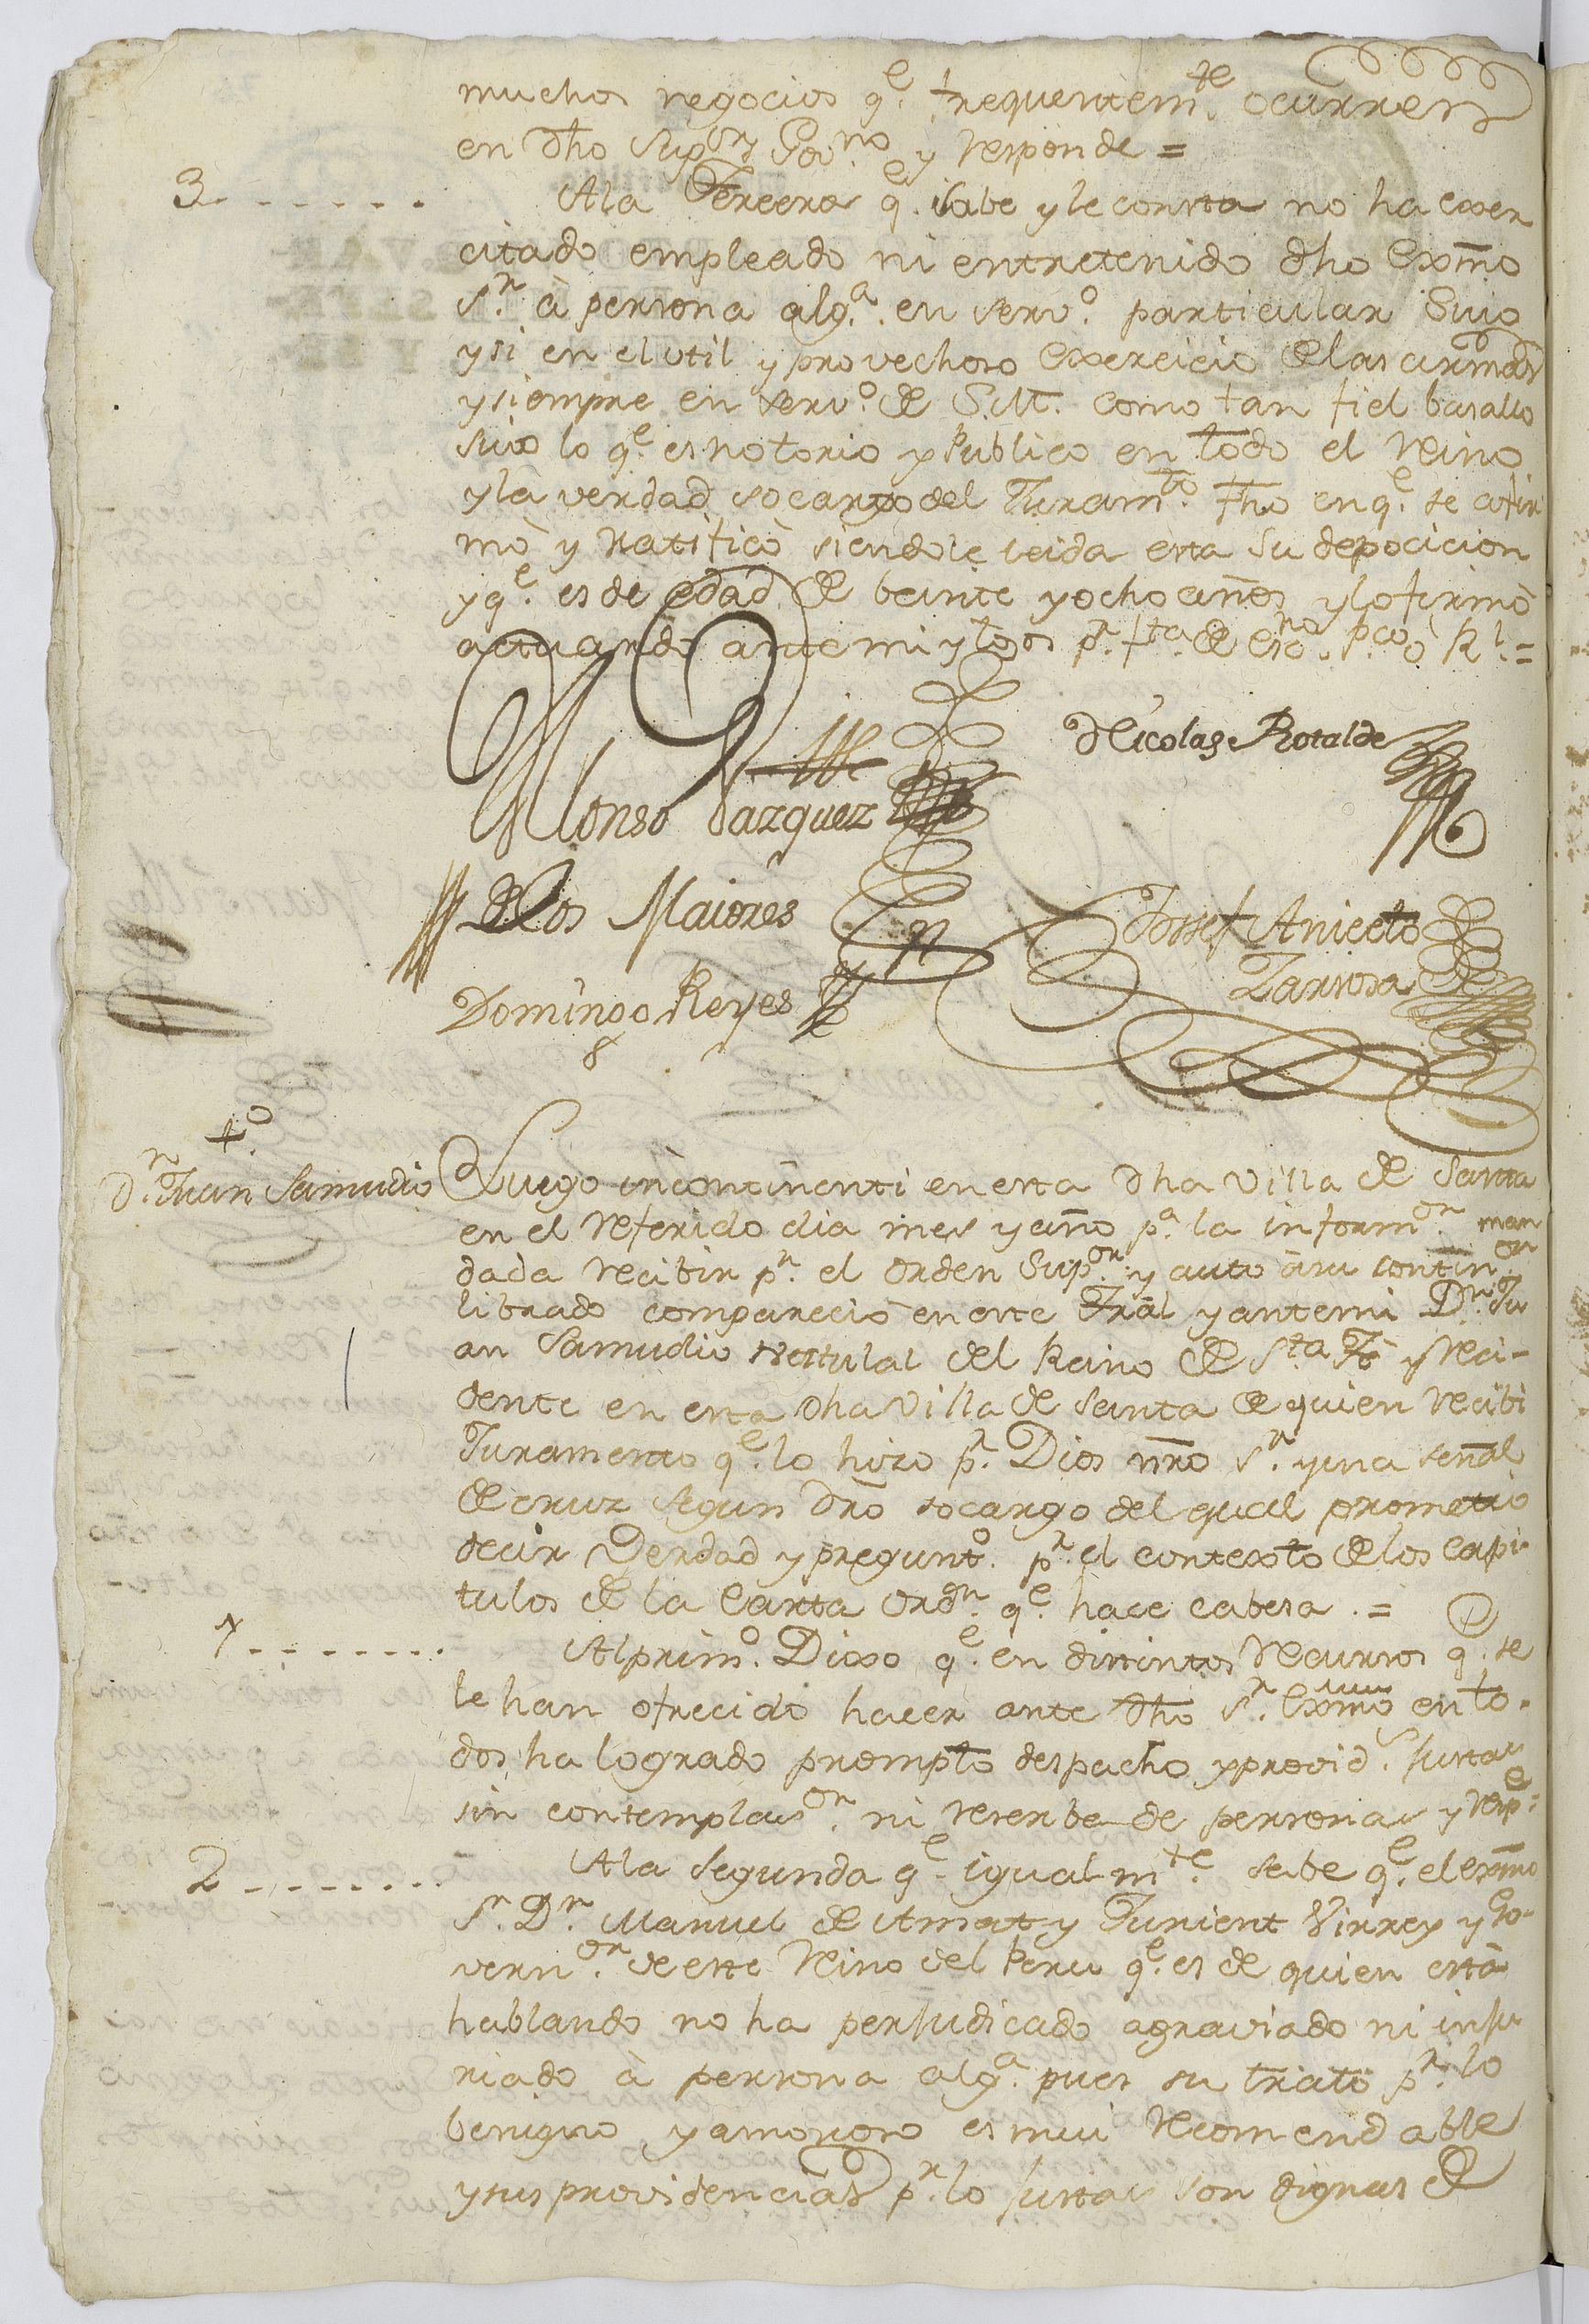 muchos negocios q.e frequentem.te ocurren
en dho Sup.or Gov.no y responde =
3. - - - - - -
A la Tercera q.e sabe y le consta no ha exer
citado empleado ni entretenido dho Exmo
S.r à persona alg.a en serv.o particular Suio
y si en el util y provechoso exercicio de las armas
y siempre en serv.o de S. M. como tan fiel basallo
suio lo q.e es notorio y publico en todo el Reino
y la verdad socargo del Juram.to fho en q.e se afir
mò y ratificò siendole leida esta su depocicion
y q.e es de edad de beinte y ocho años y lo firmò
actuando ante mi y tgos p.r fta. de esc.no p.co ò Rl. =
Nicolas Rotalde
Alonso Vazquez
de los Maiores
Josef Aniceto
Larrosa
Domingo Reyes
t.o
D.n Juan Samudio
Luego incontinenti en esta dha Villa de Santa
en el referido dia mes y año p.a la inform.on man
dada recibir p.r el orden Sup.or y auto à su contin.on
librado comparecio en este Tral y ante mi D.n Ju
an Samudio natural del Reino de S.ta Fè y reci-
dente en esta dha Villa de Santa de quien recibi
Juramento q.e lo hizo p.r Dios nro S.r y una señal
de cruz segun dro socargo del qual prometio
decir Verdad y pregunt.o p.r el contexto de los capi-
tulos de la Carta ord.n q.e hace cabesa . =
1 - - - - - - -
Al prim.o Dixo q.e en distintos recursos q.e se
le han ofrecido hacer ante dho S.r Exmo en to-
dos, ha logrado prompto despacho y provid.s Justas
sin contemplas.on ni reserba de personas y resp.e =
2 - - - - - - -
A la segunda q.e igualm.te sabe q.e el Exmo
S.r D.n Manuel de Amat y Junient Virrey y Go-
vern.or de este Reino del Peru q.e es de quien està
hablando no ha perjudicado agraviado ni inju
riado à persona alg.a pues su trato p.r lo
benigno y amoroso es mui recomendable
y sus providencias p.r lo justas son dignas de